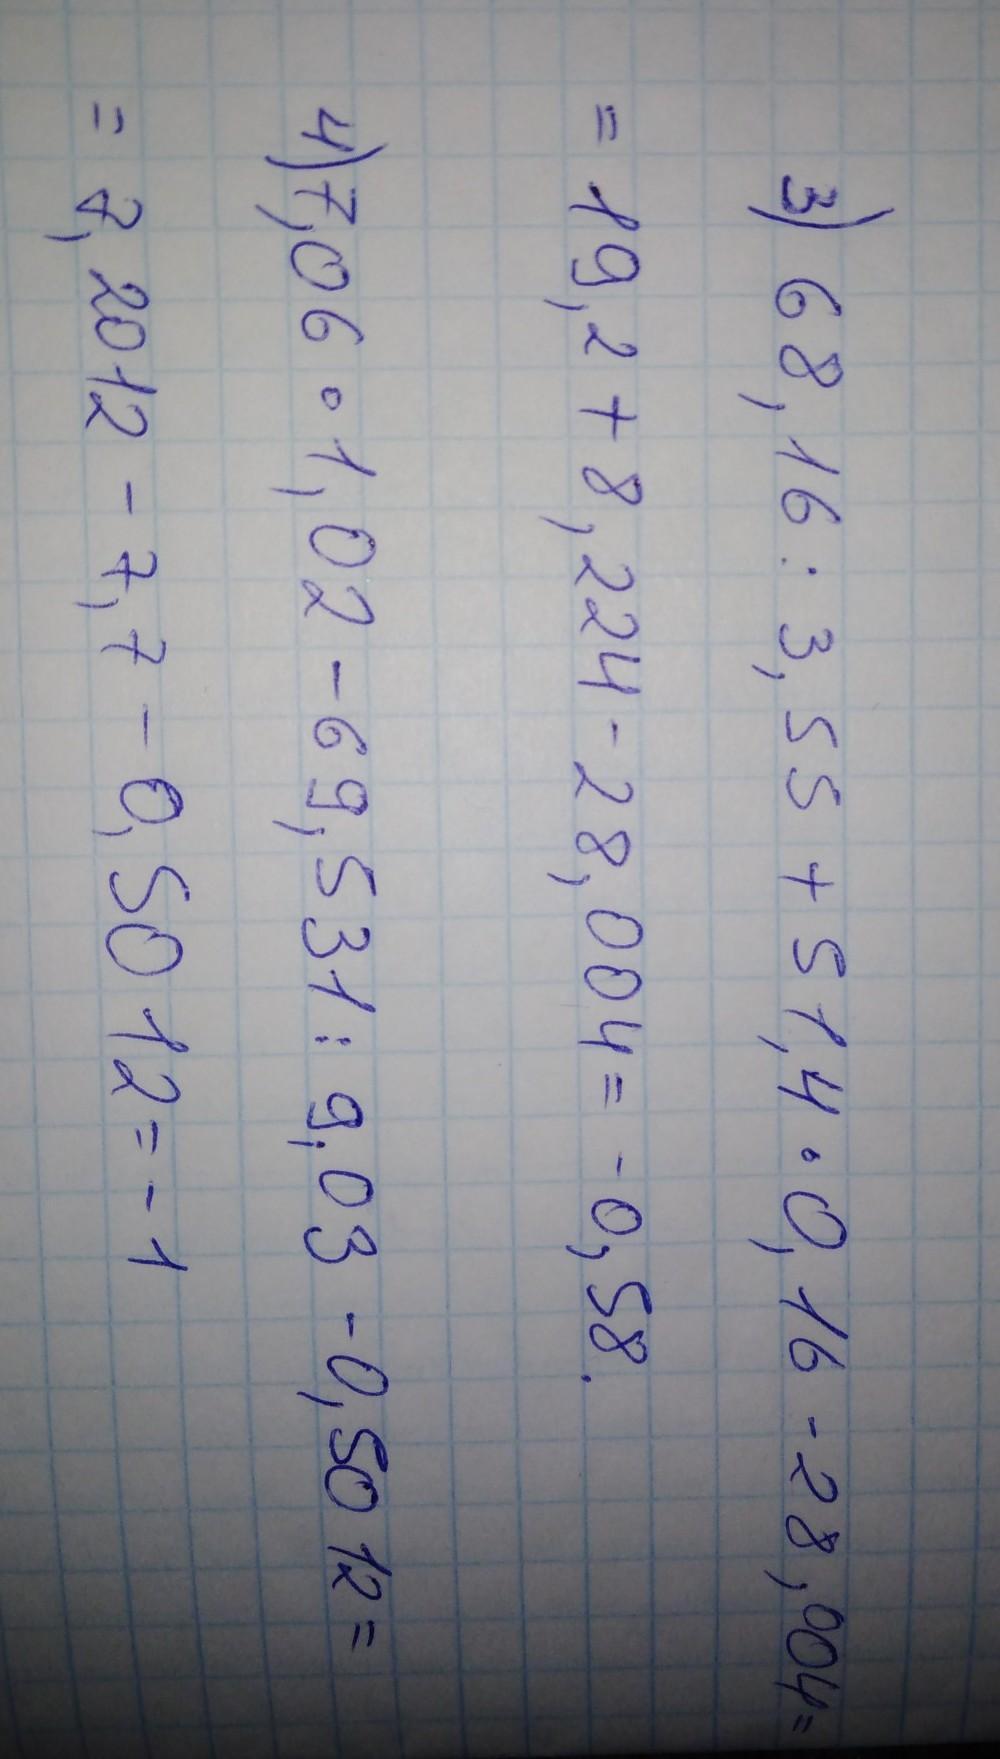 3) 68,16 : 3,55 + 51,4 · 0,16 - 28,004 =
= 19,2 + 8,224 - 28,004 = -0,58.
4) 7,06 · 1,02 - 69,531 : 9,03 - 0,5012 =
= 7,2012 - 7,7 - 0,5012 = -1